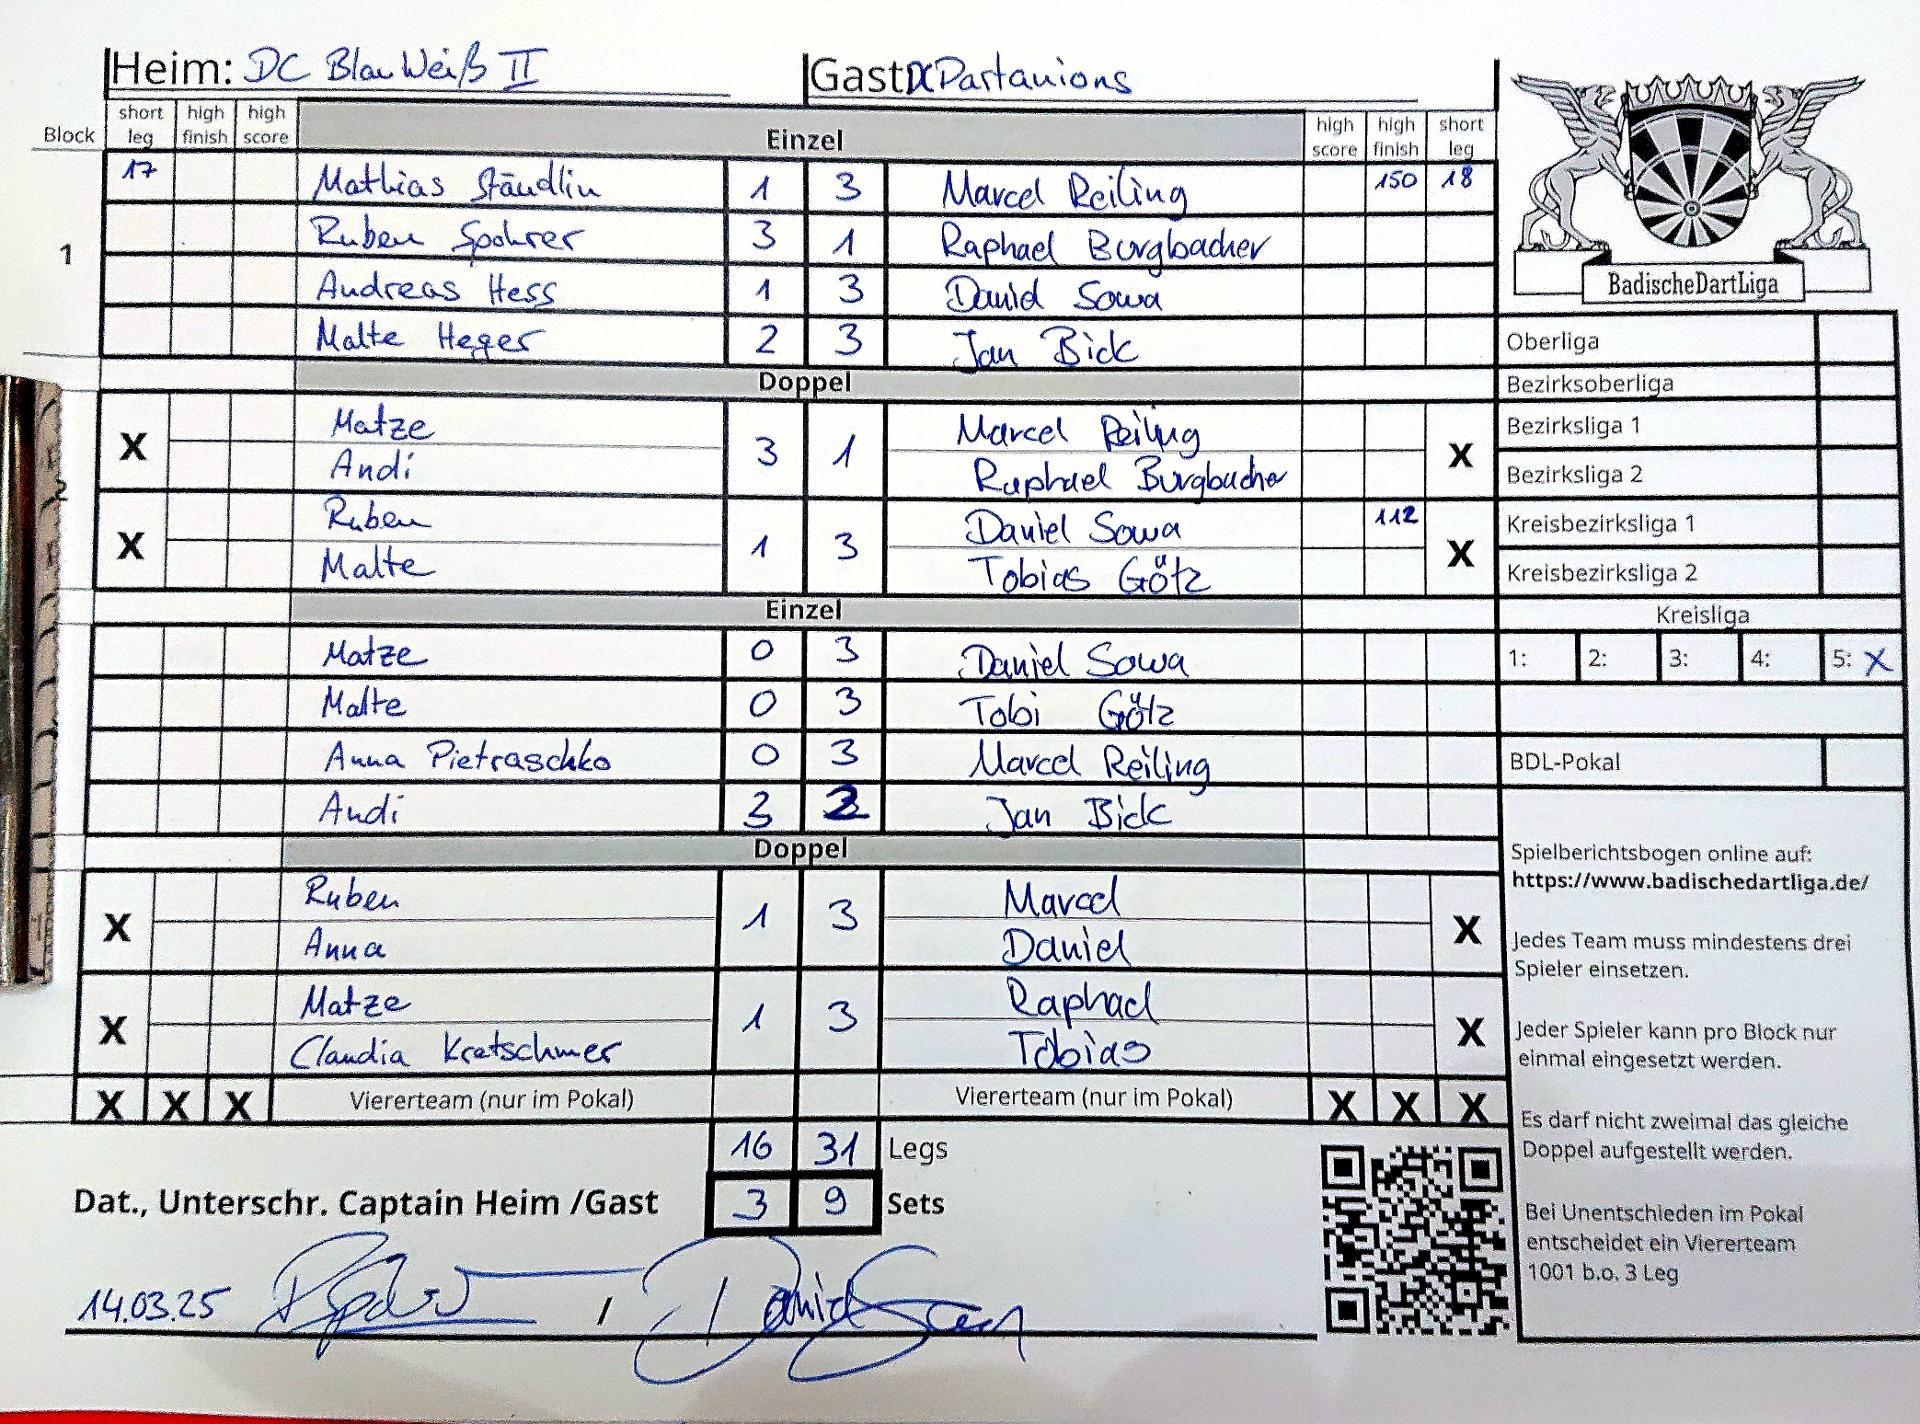 Heim: DC Blau Weiß II Gast DC Dartanions
Block short leg high finish high score Einzel high score high finish short leg
17 Mathias Stäudlin 1 3 Marcel Reiling 150 18
Ruben Spohrer 3 1 Raphael Burgbacher
1
Andreas Hess 1 3 David Sowa
Malte Heger 2 3 Jan Bick
Doppel
Matze Marcel Reiling
X 3 1 X
Andi Raphael Burgbacher
Ruben Daniel Sowa 112
X 1 3 X
Malte Tobias Götz
Einzel
Matze 0 3 Daniel Sowa
Malte 0 3 Tobi Götz
Anna Pietraschko 0 3 Marcel Reiling
Andi 3 2 Jan Bick
Doppel
Ruben Marcel
X 1 3 X
Anna Daniel
Matze Raphael
X 1 3 X
Claudia Kretschmer Tobias
X X X Viererteam (nur im Pokal) Viererteam (nur im Pokal) X X X
16 31 Legs
Dat., Unterschr. Captain Heim /Gast 3 9 Sets
14.03.25 / Daniel Sowa
BadischeDartLiga
Oberliga
Bezirksoberliga
Bezirksliga 1
Bezirksliga 2
Kreisbezirksliga 1
Kreisbezirksliga 2
Kreisliga
1: 2: 3: 4: 5: X
BDL-Pokal
Spielberichtsbogen online auf:
https://www.badischedartliga.de/
Jedes Team muss mindestens drei
Spieler einsetzen.
Jeder Spieler kann pro Block nur
einmal eingesetzt werden.
Es darf nicht zweimal das gleiche
Doppel aufgestellt werden.
Bei Unentschieden im Pokal
entscheidet ein Viererteam
1001 b.o. 3 Leg